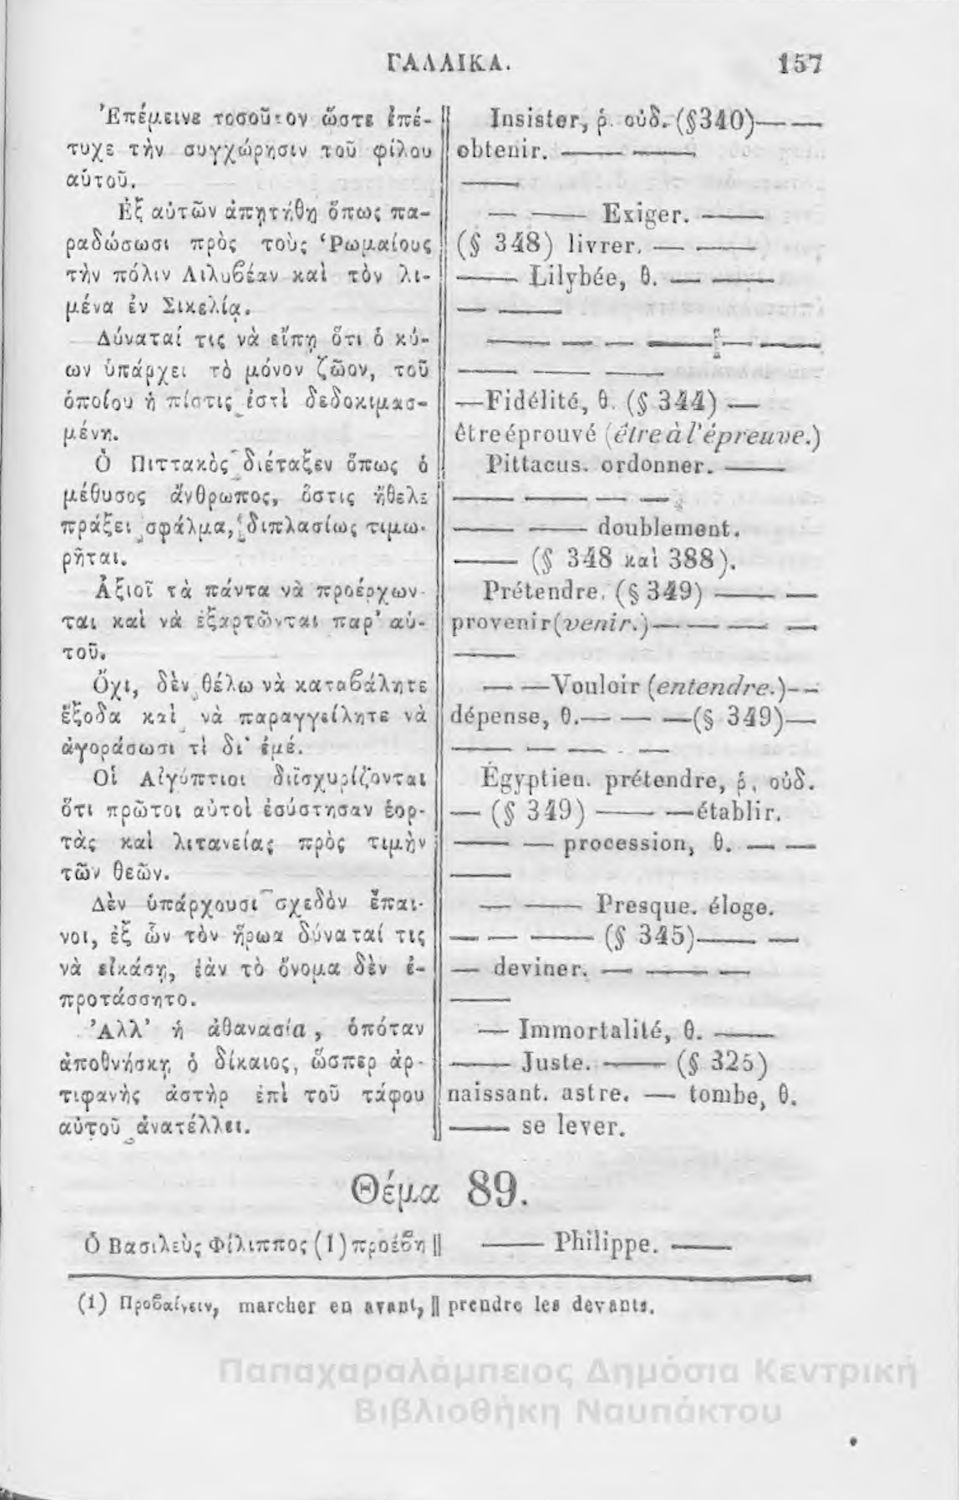 ΓΑΛΛΙΚΑ. 157
Ἐπέμεινε τοσοῦτον ὥστε ἐπέ-
τυχε τὴν συγχώρησιν τοῦ φίλου
αὐτοῦ.
Ἐξ αὐτῶν ἀπῃτήθη ὅπως πα-
ραδώσωσι πρὸς τοὺς Ῥωμαίους
τὴν πόλιν Λιλυβέαν καὶ τὸν λι-
μένα ἐν Σικελίᾳ.
Δύναταί τις νὰ εἴπῃ ὅτι ὁ κύ-
ων ὑπάρχει τὸ μόνον ζῶον, τοῦ
ὁποίου ἡ πίστις ἐστὶ δεδοκιμασ-
μένη.
Ὁ Πιττακὸς διέταξεν ὅπως ὁ
μέθυσος ἄνθρωπος, ὅστις ἤθελε
πράξει σφάλμα, διπλασίως τιμω-
ρῆται.
Ἀξιοῖ τὰ πάντα νὰ προέρχων-
ται καὶ νὰ ἐξαρτῶνται παρ' αὐ-
τοῦ.
Ὄχι, δὲν θέλω νὰ καταβάλητε
ἔξοδα καὶ νὰ παραγγείλητε νὰ
ἀγοράσωσι τὶ δι' ἐμέ.
Οἱ Αἰγύπτιοι διϊσχυρίζονται
ὅτι πρῶτοι αὐτοὶ ἐσύστησαν ἑορ-
τὰς καὶ λιτανείας πρὸς τιμὴν
τῶν θεῶν.
Δὲν ὑπάρχουσι σχεδὸν ἔπαι-
νοι, ἐξ ὧν τὸν ἥρωα δύναταί τις
νὰ εἰκάσῃ, ἐὰν τὸ ὄνομα δὲν ἐ-
προτάσσητο.
Ἀλλ' ἡ ἀθανασία, ὁπόταν
ἀποθνήσκῃ ὁ δίκαιος, ὥσπερ ἀρ-
τιφανὴς ἀστὴρ ἐπὶ τοῦ τάφου
αὐτοῦ ἀνατέλλει.
Insister, ῥ. οὐδ. (§340)— —
obtenir. — —
—
— — Exiger. —
(§ 348) livrer. — —
— Lilybée, θ. — —
— —
— — — — — —
— — —
—Fidélité, θ. (§ 344) —
être éprouvé (être à l'épreuve.)
Pittacus. ordonner. —
— — — —
— — doublement.
— (§ 348 καὶ 388).
Prétendre. (§ 349) — —
provenir(venir.)— — — —
—
— —Vouloir (entendre.)— —
dépense, θ.— — —(§ 349)—
— — — —
Égyptien. prétendre, ῥ. οὐδ.
— (§ 349) — —établir.
— — procession, θ. — —
—
— — Presque. éloge.
— — — (§ 345)— —
— deviner. — — —
—
— Immortalité, θ. —
— Juste. — (§ 325)
naissant. astre. — tombe, θ.
— se lever.
Θέμα 89.
Ὁ Βασιλεὺς Φίλιππος (1) προέβη || — Philippe. —
(1) Προβαίνειν, marcher en avant, || prendre les devants.
Παπαχαραλάμπειος Δημόσια Κεντρική
Βιβλιοθήκη Ναυπάκτου